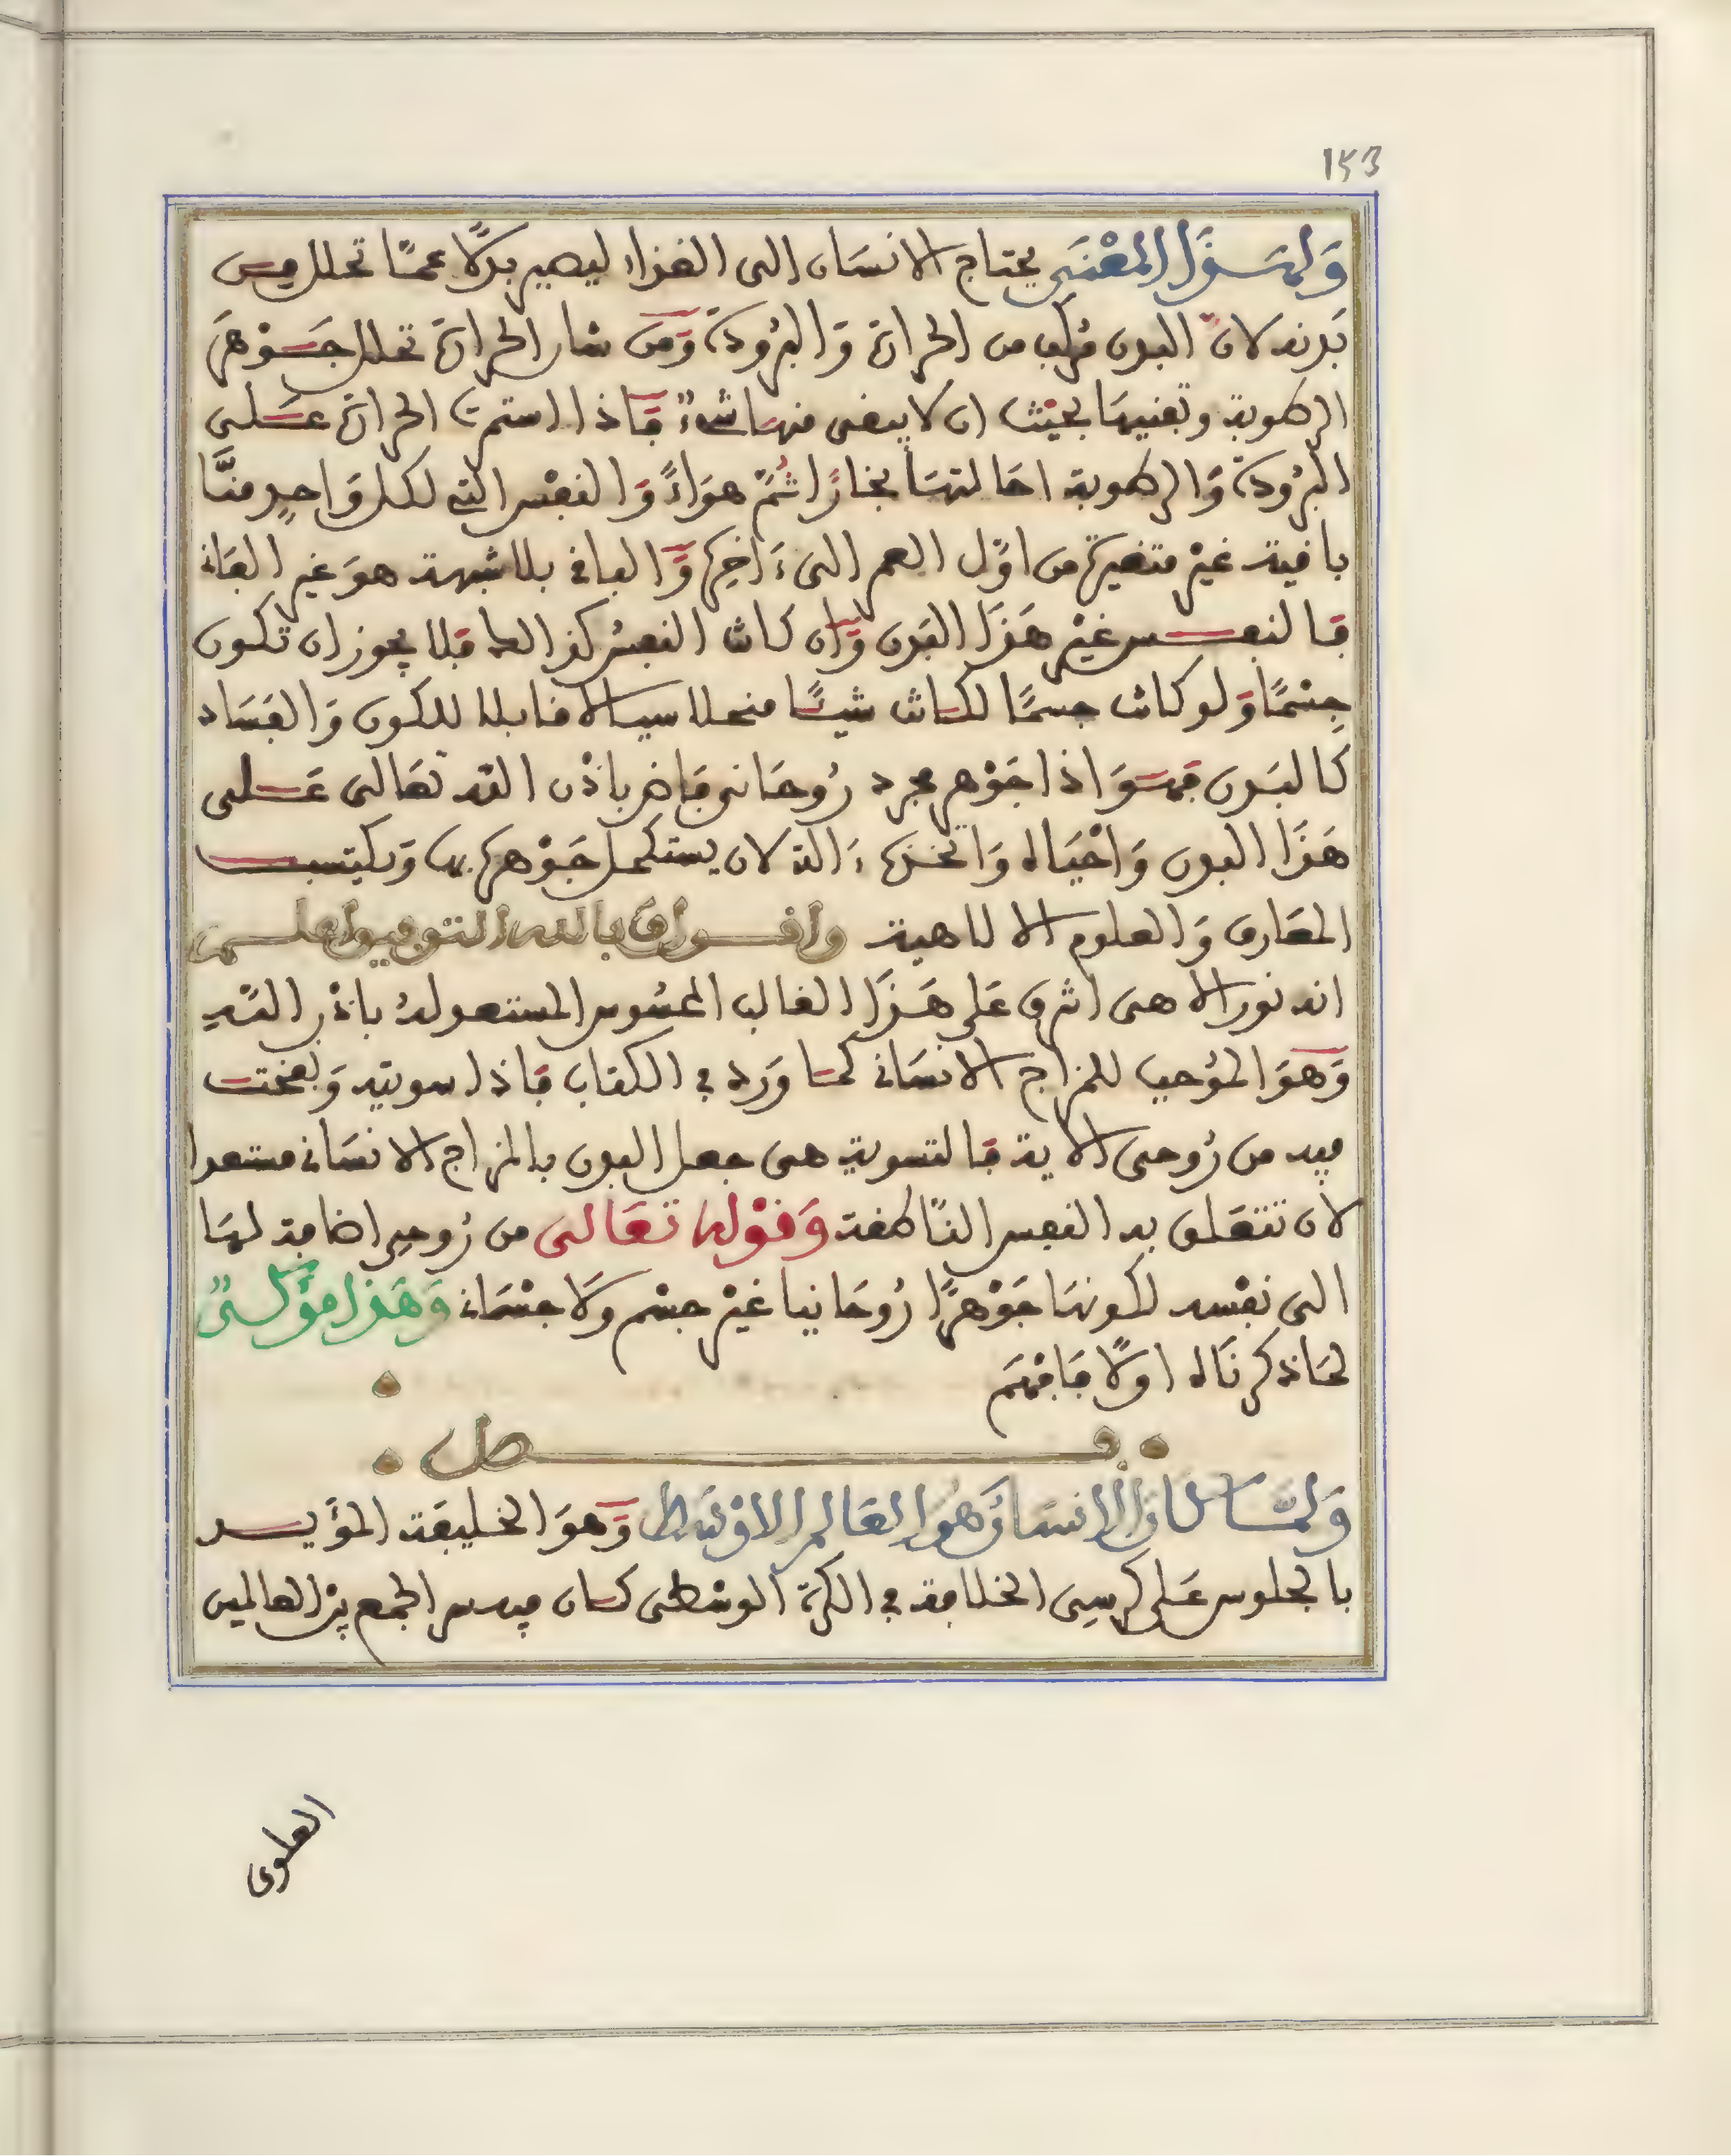 153
وَلهَذَا المعْنَى يحتاج الانسَان الى الغذاء ليصير بدلًا عمَّا تحلل مِن
بَدنه لان البدن مُركب من الحرارة وَالبرُودة وَمن شان الحرارة تحلل جَوْهَر
الرطوبة وتفنيهَا بحيث ان لا يبقى منهَا شىءٌ فَاذا استمرت الحرارة عَلى
البرُودة وَالرطوبة احَالتهَا بخارًا ثُمَّ هوَاءً وَالنفْس التى لكل وَاحِدٍ منَّا
باقية غيْر متغيرة من اوَّل العمر الى ءَاخِرِه وَالباقى بلا شبهة هوَ غير الفَانى
فَالنفس غيْر هَذَا البَدن وَان كانت النفسُ كذالك فَلا يجوز ان تكون
جِسْمًا وَلو كانت جسمًا لكانت شيئًا منحلا سيالا قابلا للكون وَالفسَاد
كَالبَدن فَهوَ اذا جَوْهر مجرد رُوحَانى فَاض باذْن الله تعَالى عَلى
هَذَا البدن وَاحْيَاه وَاتخذه ءَالة لان يستكمل جَوْهره بها وَيكتسب
المعَارف وَالعلوم الالاهية واقول وبالله التوفيق اعلم
انه نور الاهى اشرق عَلى هَذَا القالب المحسُوس المستعد لهُ باذْن اللَّهِ
وَهوَ الموْجب للمزاج الانسَانى كمَا وَرد فى الكتاب فَاذا سويته وَنفخت
فيه من رُوحى الاية فَالتسوية هى جعل البدن بالمزاج الانسَانى مستعدا
لان تتعَلق به النفس النَّاطقة وَقوْله تعَالى من رُوحِى اضافة لهَا
الى نفْسه لكونهَا جَوْهرًا رُوحَانيا غيْر جسْم وَلَا جسْمَانى وَهَذا مؤَكدٌ
لمَا ذكرنَاه اولًا فَافْهَم
فصل
وَلمَّا كان الانسَان وَهُوَ العَالم الاوْسَط وَهوَ الخليفَة المؤَيد
بالجلوس عَلى كرسِى الخلافة فى الكرة الوسْطى كان فيه سر الجمع بيْن العالمين
العلوى